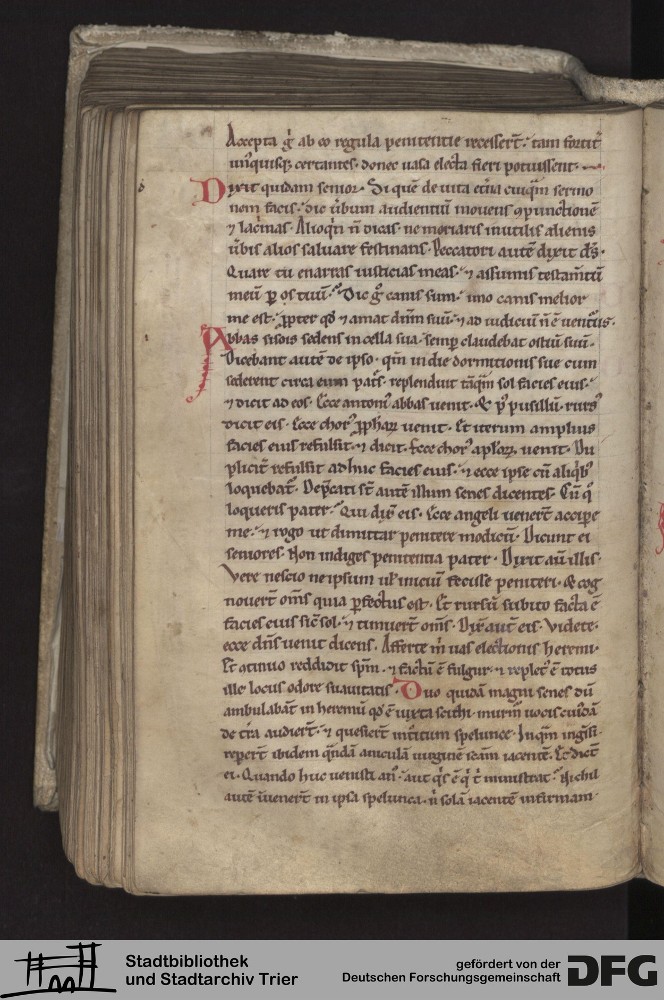 Accepta g̾ ab eo regula penitentie recesserт̄. tam fortit̾
un̾quisq; certantes. donec uasa electa fieri potuissent.
Dixit quidam senior. Si quē de uita et̾na cuiq̄m sermo
nem facis. dic u̾bum audientiū mouens ꝯpunctionē
⁊ lac̾mas. Alioq̾n n̄ dicas. ne moriaris inutilis alienis
u̾bis alios saluare festinans. Peccatori autē dixit dr̄s.
Quare tu enarras iusticias meas. ⁊ assumis testam̄tū
meū ꝑ os tuū. Dic g̾ canis sum. imo canis melior
me est. ꝓpter qd̄ ⁊ amat dn̄m suū. ⁊ ad iudiciū n̄ ē uenturus.
Abbas sisois sedens in cella sua. semꝑ claudebat ostiū suū.
Dicebant autē de ipso. qm̄ in die dormitionis sue cum
sederent circa eum patr̄s. replenduit tāq̄m sol facies eius.
⁊ dicit ad eos. Ecce antoni᾽ abbas uenit. & p᾽ pusillū. rurs᾽
dicit eis. Ecce chor᾽ ꝓphaꝝ uenit. Et iterum amplius
facies eius refulsit. ⁊ dicit. Ecce chor᾽ aplōꝝ uenit. Du
plicit̾ refulsit adhuc facies eius. ⁊ ecce ipse cū aliq̾b᾽
loquebat̾. Dep̄cati st̄ autē illum senes dicentes. Cū q̾
loqueris pater. Qui dix̄ eis. Ecce angeli uenert̄ accipe
me. ⁊ rogo ut dimittar penitere modicū. Dicunt ei
seniores. Non indiges penitentia pater. Dixit aū illis.
Vere nescio me ipsum ul̾ iniciū fecisse peniteri. & cog
nouert̄ om̄s quia ꝑfectus est. Et rursū subito facta ē
facies eius sic̄ sol. ⁊ timuert̄ om̄s. Dix̄ aut̄ eis. Videte.
ecce dn̄s uenit dicens. Afferte m̾ uas electionis heremi.
Et ꝯtinuo reddidit sp̄m. ⁊ factū ē fulgur. ⁊ replet᾽ ē totus
ille locus odore suauitatis. Duo quidā magni senes dū
ambulabāt in heremū qd̄ ē iuxta scithi. murm̄ uocis cui᾽dā
de tr̄a audiert̄. ⁊ quesiert̄ int̾itum spelunce. Inq̄m ing̾ssi.
repert̄ ibidem q̄ndā aniculā uirginē sc̄am iacentē. Et dict̄
ei. Quando huc uenisti an᾽. aut q̾s ē q̾ t̾ ministrat. Nichil
autē inuenert̄ in ipsa spelunca. n̾ solā iacentē infirmam.
Stadtbibliothek
und Stadtarchiv Trier
gefördert von der
Deutschen Forschungsgemeinschaft
DFG